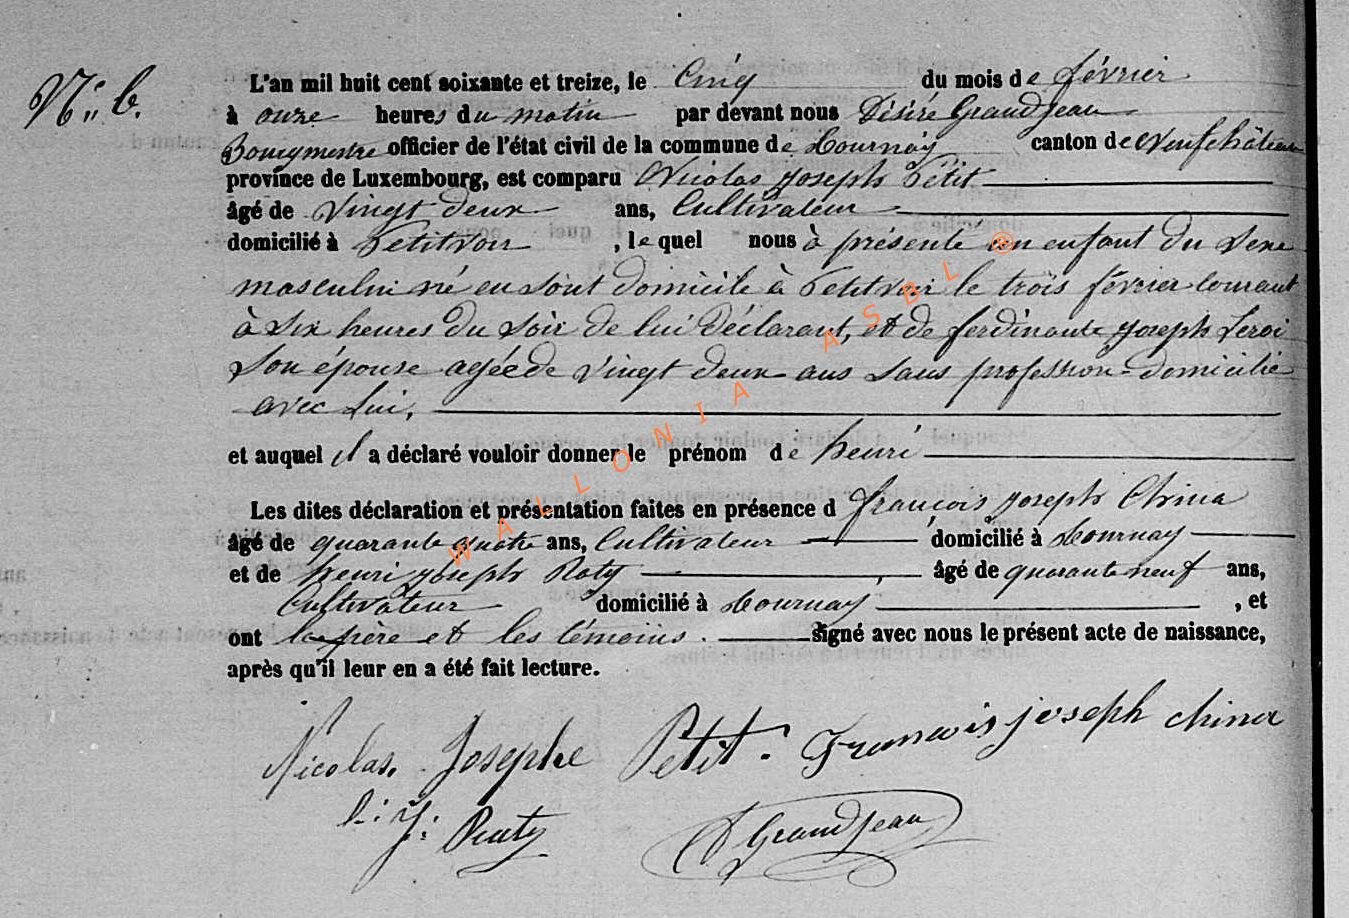 N° 6.
L'an mil huit cent soixante et treize, le Cinq du mois de février
à onze heures du matin par devant nous Désiré Grandjean
Bourgmestre officier de l'état civil de la commune de Tournay canton de Neufchâteau
province de Luxembourg, est comparu Nicolas Joseph Petit
âgé de vingt deux ans, Cultivateur
domicilié à Petitvoir, lequel nous à présenté un enfant du sexe
masculin né en sont domicile à Petitvoir le trois février courant
à six heures du soir de lui déclarant, et de ferdinante Joseph Leroi
son épouse agée de vingt deux ans sans profession domicilié
avec lui,
et auquel il a déclaré vouloir donner le prénom de henri
Les dites déclaration et présentation faites en présence d françois joseph China
âgé de quarante quatre ans, Cultivateur domicilié à Tournay
et de henri joseph Roty âgé de quarante neuf ans,
Cultivateur domicilié à Tournay, et
ont le père et les témoins. signé avec nous le présent acte de naissance,
après qu'il leur en a été fait lecture.
Nicolas Josephe Petit. Francois joseph china
h: J: Routy D Grandjean
WALLONIA ASBL ®